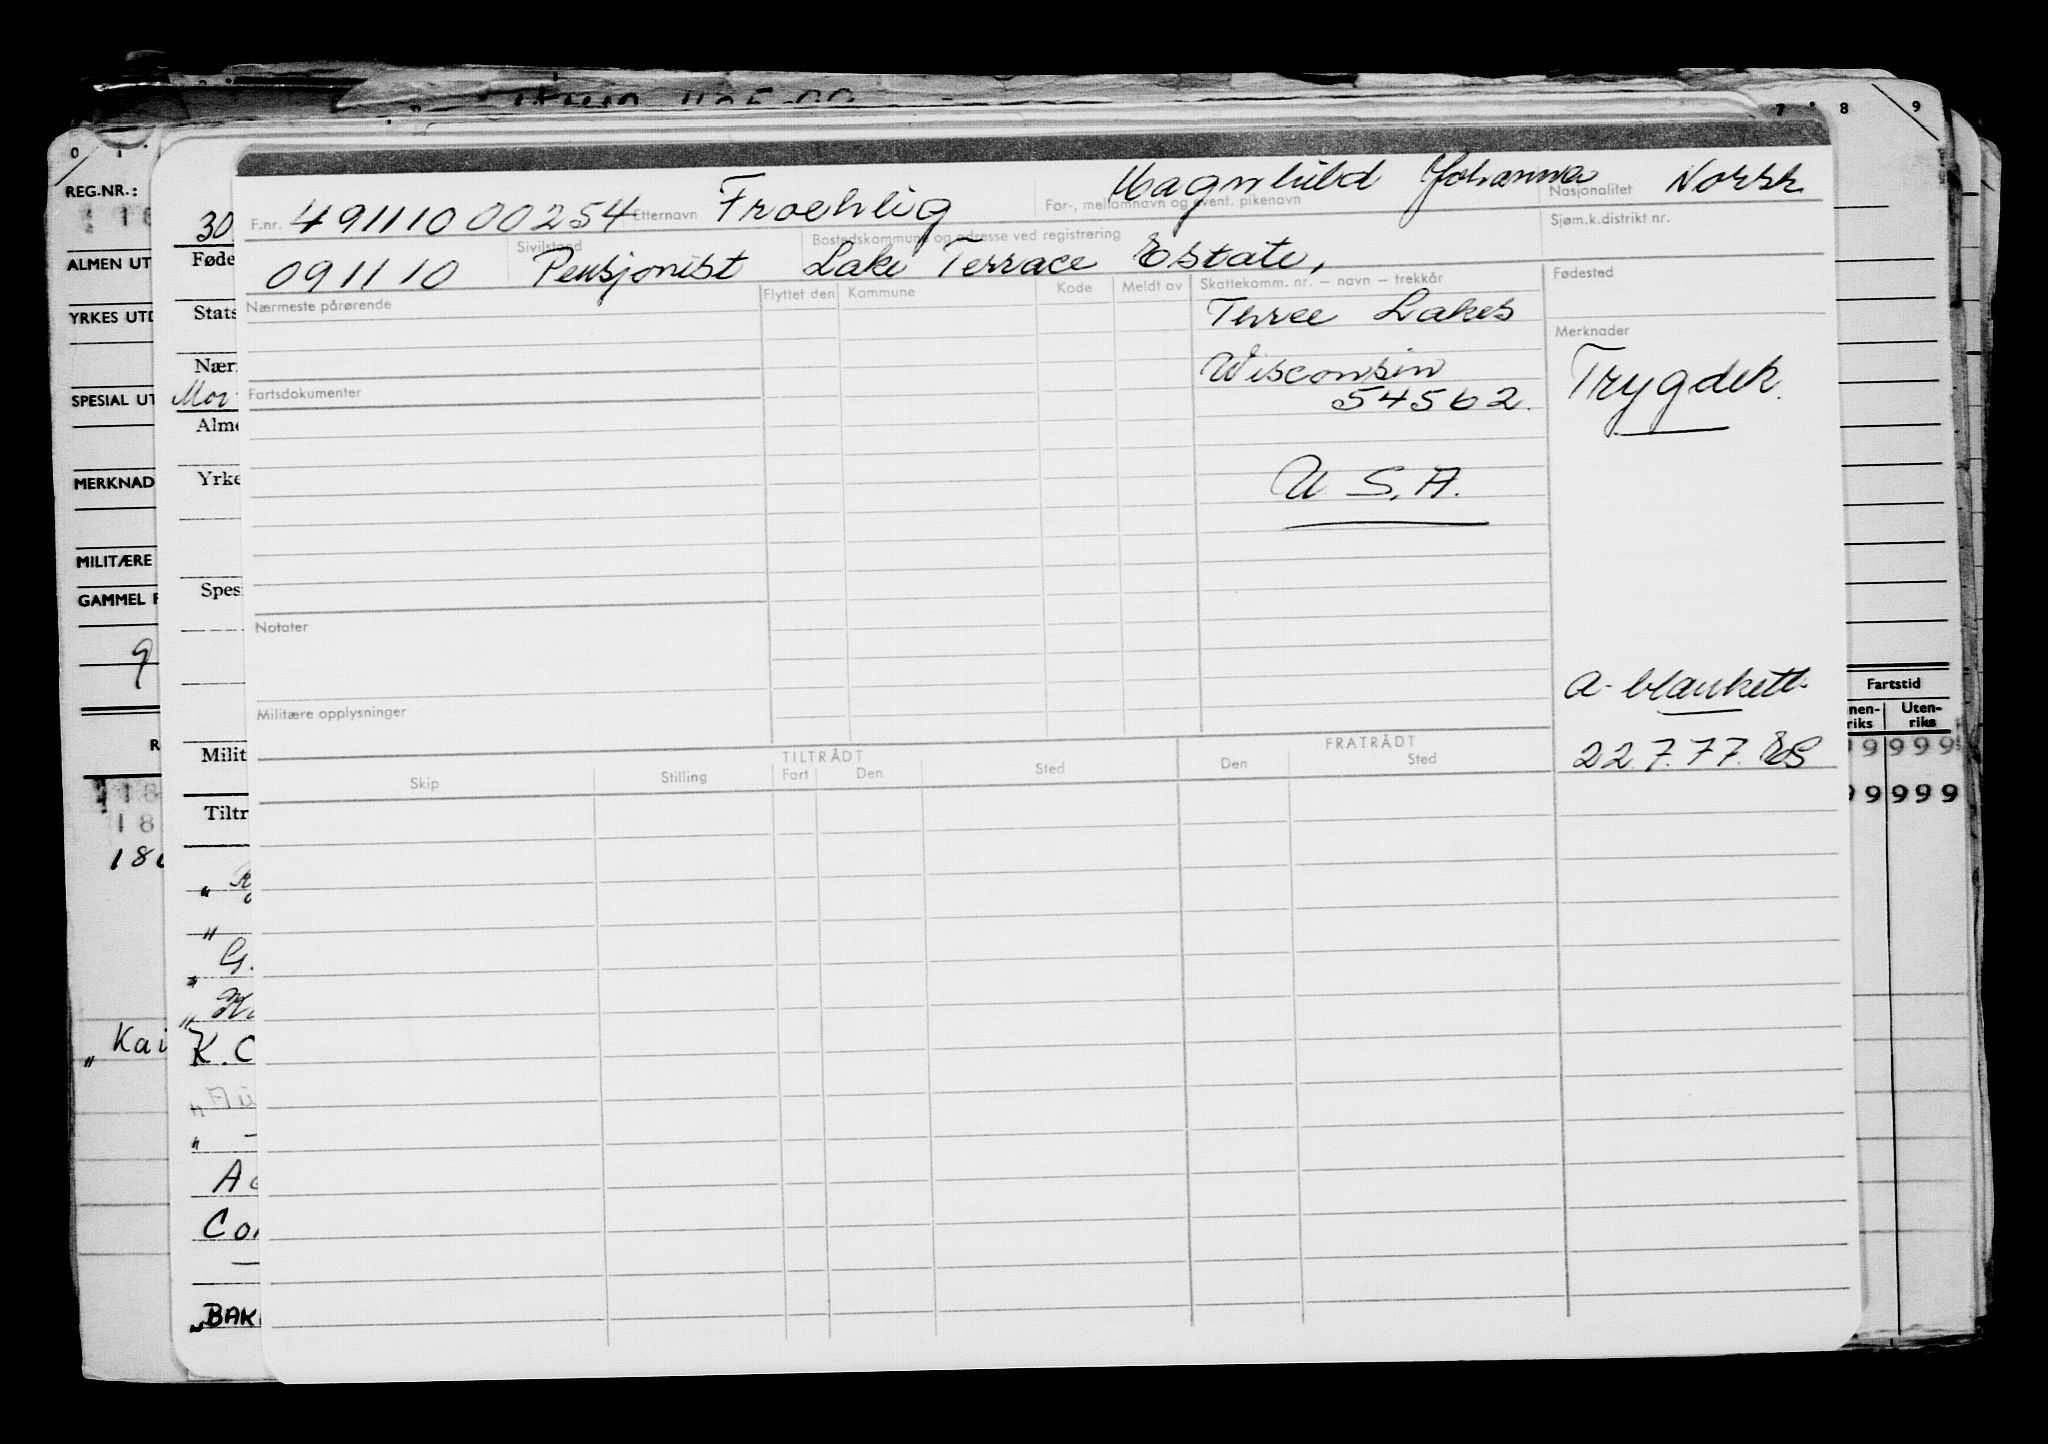 0 1 7 8 9
REG.NR.:
ALMEN UT
YRKES UTD
SPESIAL UT
MERKNAD
MILITÆRE
GAMMEL F
9
30
Føde
Stats
Nær
Mor
Alme
Yrke
Spes
Milit
Tiltr
F.nr. 49111000254 Etternavn Froehlig For-, mellomnavn og event. pikenavn Magnhild Johanna Nasjonalitet Norsk
091110 Sivilstand Pensjonist Bostedskommune og adresse ved registrering Lake Terrace Estate, Sjøm.k.distrikt nr.
Nærmeste pårørende Flyttet den Kommune Kode Meldt ov Skattekomm. nr. — navn — trekkår Fødested
Three Lakes
Merknader
Wisconsin
54562.
Trygdek.
Fartsdokumenter
U S.A.
Notater
A-blankett
Militære opplysninger
22.7.77. ES
TILTRÅDT FRATRÅDT
Skip Stilling Fart Den Sted Den Sted
Fartstid
nen-riks Uten-riks
9 9 9 9
9 9 9 9 9
18
" Kai
G.
K.C
Co
BAK